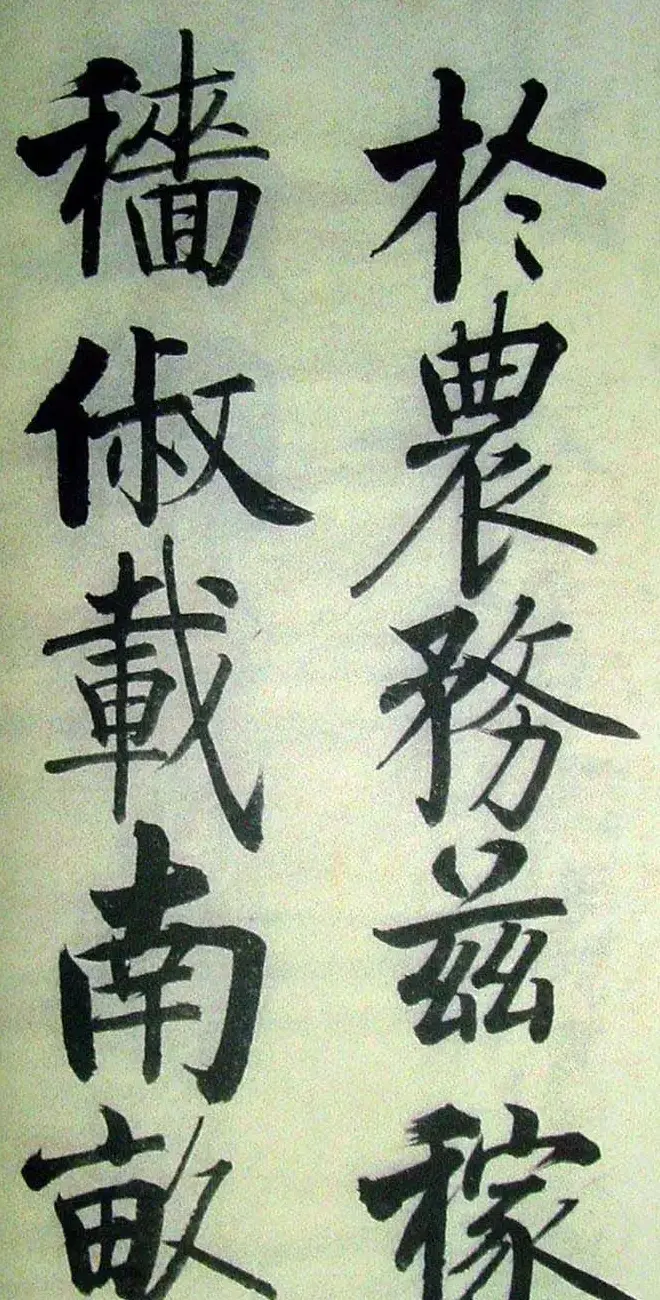 於農務茲稼
穡俶載南畝